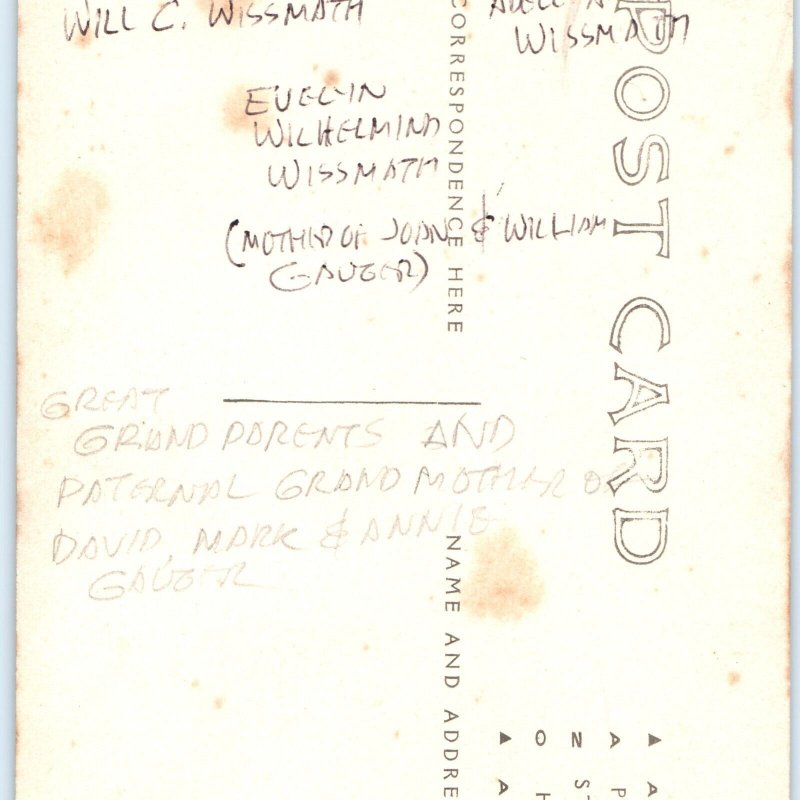 WILL C. WISSMATH
WISSMATH
EVELYN
WILHELMINA
WISSMATH
(MOTHER OF JOAN & WILLIAM
GAUGER)
GREAT
GRAND PARENTS AND
PATERNAL GRAND MOTHER OF
DAVID, MARK & ANNIE
GAUGER
CORRESPONDENCE HERE
POST CARD
NAME AND ADDRE